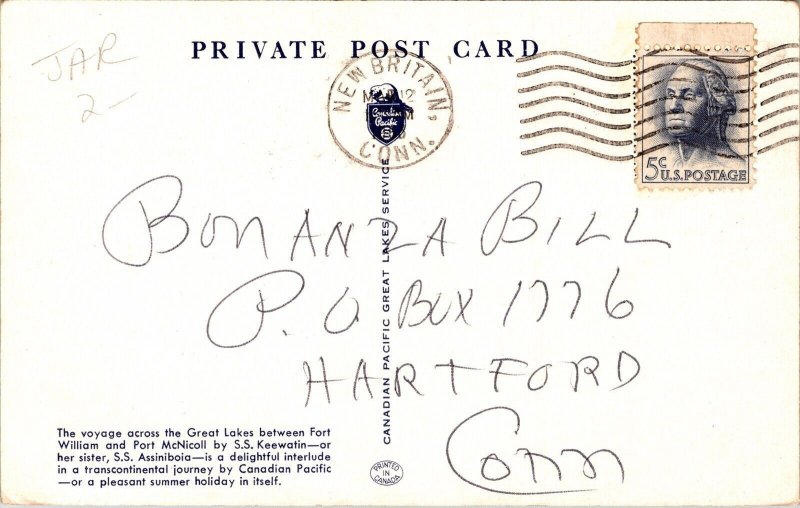 JAR
2-
PRIVATE POST CARD
NEW BRITAIN,
12
CONN.
Canadian
Pacific
5c
U.S. POSTAGE
BONANZA BILL
P.O BOX 1776
HARTFORD
Conn
CANADIAN PACIFIC GREAT LAKES SERVICE
The voyage across the Great Lakes between Fort
William and Port McNicoll by S.S. Keewatin—or
her sister, S.S. Assiniboia—is a delightful interlude
in a transcontinental journey by Canadian Pacific
—or a pleasant summer holiday in itself.
PRINTED
IN
CANADA